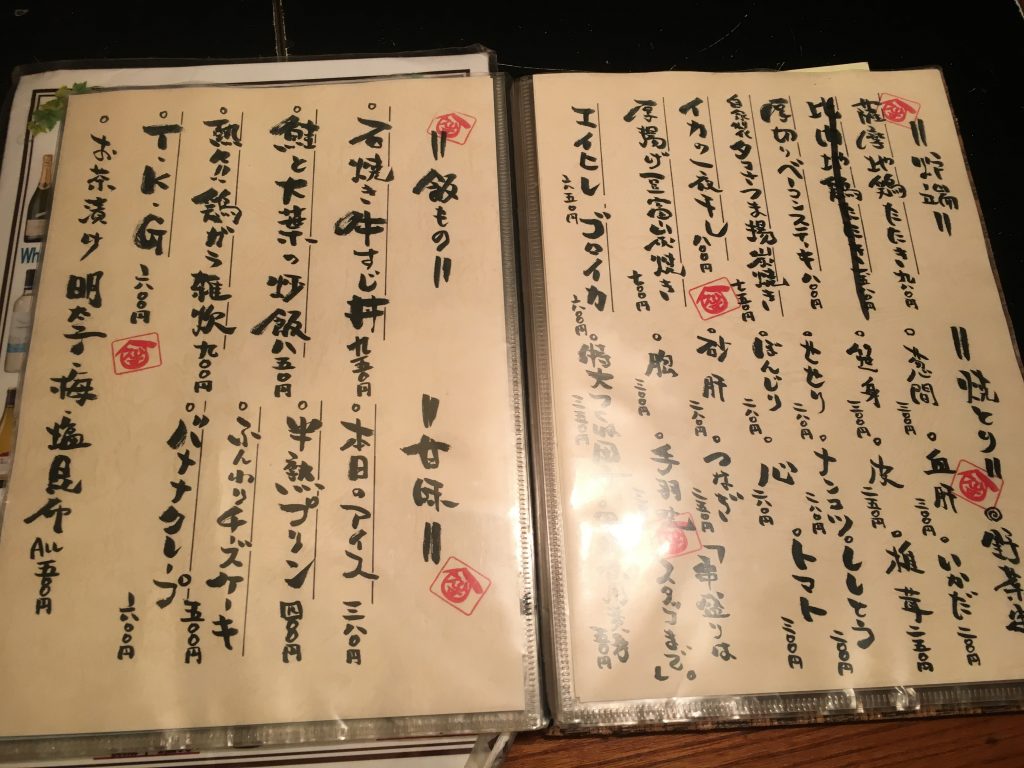 =炉端=
薩摩地鶏たたき 九八〇円
厚切りベーコンステーキ 八〇〇円
自家製タコさつま揚炭焼き 七五〇円
イカの一夜干し 八〇〇円
厚揚げ豆富炭焼き 七〇〇円
エイヒレ 六五〇円
ゴロイカ 六〇〇円
=焼とり=
◎野菜
・葱間 二八〇円
・血肝 二八〇円
・いかだ 二〇〇円
・皮 二五〇円
椎茸 二五〇円
・せせり 二八〇円
・ナンコツ 二八〇円
・ししとう 二〇〇円
・ぼんじり 二八〇円
・心 二六〇円
・トマト 三〇〇円
・砂肝 二八〇円
・つなぎ 二五〇円
・腿 三〇〇円
・手羽先
「串盛りは
スタッフまで」。
=飯もの=
・石焼き牛すじ丼 九五〇円
・鮭と大葉の炒飯 八五〇円
・熱々鶏がら雑炊 九〇〇円
・T・K・G 六〇〇円
・お茶漬け 明太子・梅・塩昆布 ALL五五〇円
=甘味=
・本日のアイス 三八〇円
・半熟プリン 四八〇円
・ふんわりチズケーキ 五〇〇円
・バナナクレープ 六〇〇円